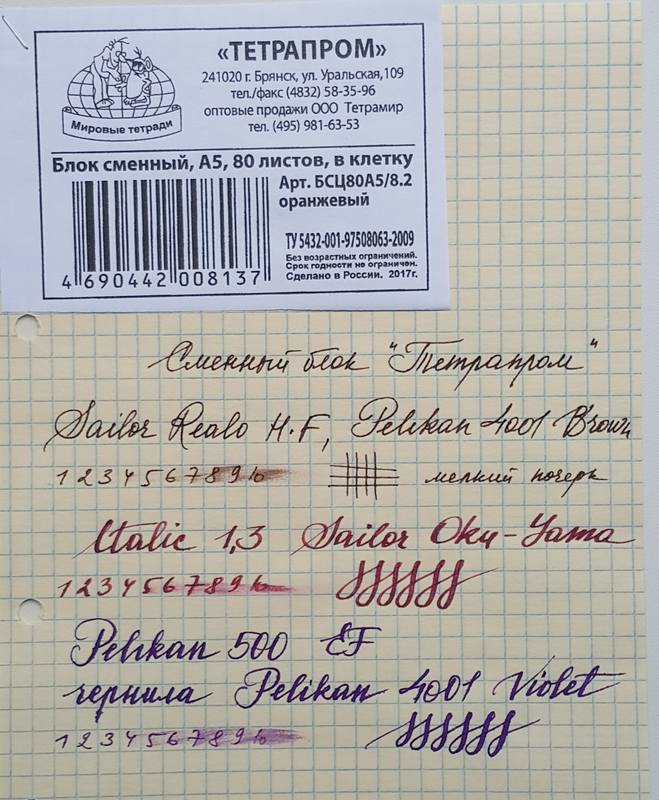 «ТЕТРАПРОМ»
241020 г. Брянск, ул. Уральская,109
тел./факс (4832) 58-35-96
оптовые продажи ООО Тетрамир
тел. (495) 981-63-53
Мировые тетради
Блок сменный, А5, 80 листов, в клетку
Арт. БСЦ80А5/8.2
оранжевый
ТУ 5432-001-97508063-2009
Без возрастных ограничений.
Срок годности не ограничен.
Сделано в России. 2017г.
4 690442 008137
Сменный блок "Тетрапром"
Sailor Realo H.F, Pelikan 4001 Brown
1 2 3 4 5 6 7 8 9 10 мелкий почерк
Italic 1,3 Sailor Oku-Yama
1 2 3 4 5 6 7 8 9 10
Pelikan 500 EF
чернила Pelikan 4001 Violet
1 2 3 4 5 6 7 8 9 10